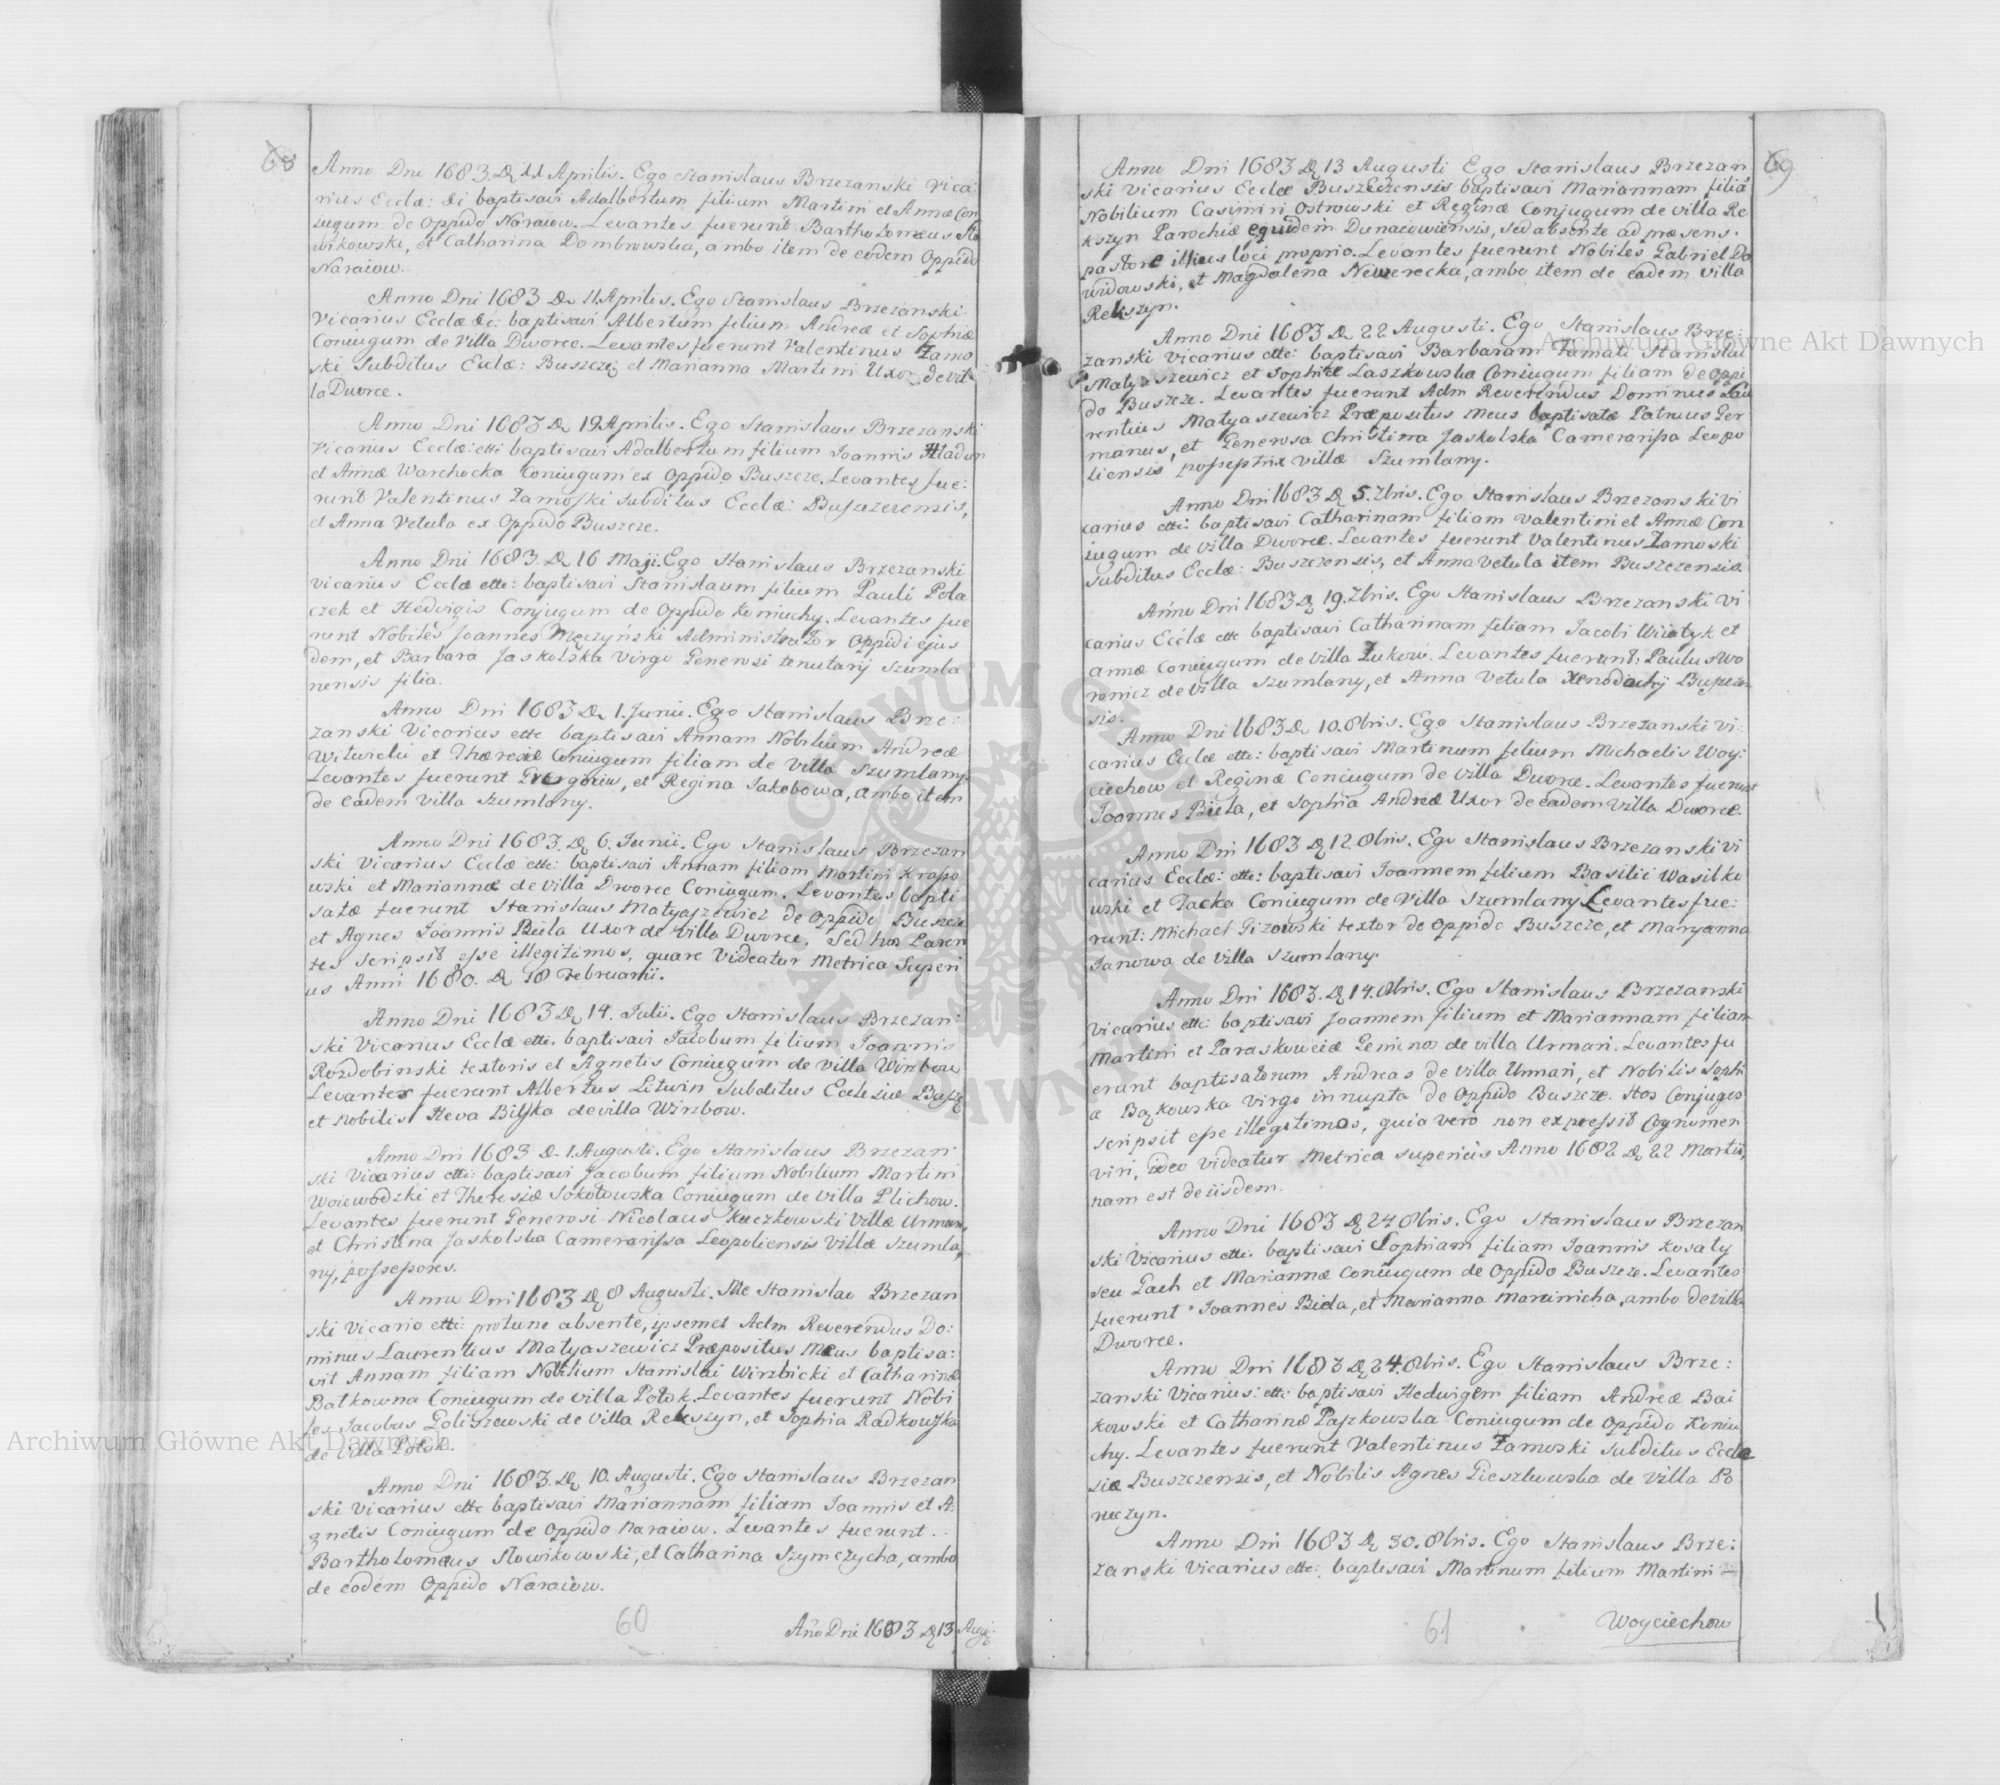 68
Anno Dni 1683. D. 11 Aprilis. Ego Stanislaus Brzezanski Vica:
rius Eccla: &c baptisavi Adalbertum filium Martini et Annæ Con
iugum de Oppido Naraiow. Levantes fuerunt Bartholomeus Sło
wikowski, et Catharina Dombrowska, ambo item de eodem Oppido
Naraiow.
Anno Dni 1683 D. 11 Aprilis. Ego Stanislaus Brzezanski
Vicarius Ecclæ &c: baptisavi Albertum filium Andreæ et Sophiæ
Coniugum de Villa Dworce. Levantes fuerunt Valentinus Zamo
ski Subditus Eccłæ: Buszcze: et Marianna Martini Uxor de vil
la Dworce.
Anno Dni 1683 D. 19 Aprilis. Ego Stanislaus Brzezanski
Vicarius Ecclæ: ettc: baptisavi Adalbertum filium Joannis Hladun
et Annæ Warchocka Coniugum ex Oppido Buszcze. Levantes fue:
runt Valentinus Zamoski subditus Ecclæ: Buszczensis,
et Anna Vetula ex Oppido Buszcze.
Anno Dni 1683. D. 16 Maji. Ego Stanislaus Brzezanski
Vicarius Ecclæ ettc: baptisavi Stanislaum filium Pauli Pola
czek et Hedvigis Conjugum de Oppido Koniuchy. Levantes fue
runt Nobiles Joannes Męczyński Administrator Oppidi ejus
dem, et Barbara Jaskolska Virgo Generosi tenutarij Szumla
nensis filia.
Anno Dni 1683 D. 1. Junii. Ego Stanislaus Brze:
zanski Vicarius ettc baptisavi Annam Nobilium Andreæ
Witwicki et Thæresiæ Coniugum filiam de Villa Szumlany.
Levantes fuerunt Gregoriu, et Regina Jakobowa, ambo item
de eadem Villa Szumlany.
Anno Dni 1683. D. 6. Junii. Ego Stanislaus Brzezan
ski Vicarius Ecclæ ettc: baptisavi Annam filiam Martini Krasso
wski et Mariannæ de Villa Dworce Coniugum. Levantes bapti
satæ fuerunt Stanislaus Matyaszewicz de Oppido Buszcze
et Agnes Joannis Biela Uxor de Villa Dworce. Sed hos Paren
tes scripsit esse illegitimos, quare Videatur Metrica Superi
us Anni 1680. D. 18 Februarii.
Anno Dni 1683 D. 14. Julii. Ego Stanislaus Brzezan:
ski Vicarius Ecclæ ettc. baptisavi Jacobum filium Joannis
Rozdobinski textoris et Agnetis Coniugum de Villa Wirzbow
Levantes fuerunt Albertus Litwin Subditus Ecclesiæ Buszcz
et Nobilis Heva Bilska de villa Wirzbow.
Anno Dni 1683 D. 1. Augusti. Ego Stanislaus Brzezan
ski Vicarius ettc: baptisavi Jacobum filium Nobilium Martini
Woiewodzki et Theresiæ Sokołowska Coniugum de Villa Plichow.
Levantes fuerunt Generosi Nicolaus Kuczkowski Villæ Urmans
et Christina Jaskolska Camerarissa Leopoliensis Villæ Szumla
ny, possessores.
Anno Dni 1683 D. 8 Augusti. Me Stanislao Brzezan
ski Vicario ettc: protunc absente, ipsemet Adm Reverendus Do:
minus Laurentius Matyaszewicz Præpositus Meus baptisa:
vit Annam filiam Nobilium Stanislai Wirzbicki et Catharinæ
Batkowna Coniugum de villa Potok. Levantes fuerunt Nobi
les Jacobus Goliszewski de Villa Rekszyn, et Sophia Radkowska
de Villa Potok.
Anno Dni 1683. D. 10. Augusti. Ego Stanislaus Brzezan
ski Vicarius ettc baptisavi Mariannam filiam Joannis et A:
gnetis Coniugum de Oppido Naraiow. Levantes fuerunt
Bartholomæus Słowikowski, et Catharina Szymczycha, ambo
de eodem Oppido Naraiow.
60
Año Dni 1683 D. 13 Aug:
69
Anno Dni 1683 D. 13 Augusti Ego Stanislaus Brzezan
ski Vicarius Ecclæ Buszczensis baptisavi Mariannam filiã
Nobilium Casimiri Ostrowski et Reginæ Conjugum de villa Re
kszyn Parochiæ equidem Dunaiowiensis, sed absente ad præsens
pastore illius loci proprio. Levantes fuerunt Nobiles Gabriel Da
widowski, et Magdalena Newerecka, ambo item de eadem Villa
Rekszyn.
Anno Dni 1683. D. 22 Augusti. Ego Stanislaus Brze:
zanski Vicarius ettc: baptisavi Barbaram Famati Stanislai
Matyaszewicz et Sophiæ Laszkowska Coniugum filiam de Oppi
do Buszcze. Levantes fuerunt Adm Reverendus Dominus Lau
rentius Matyaszewicz Præpositus Meus baptisatæ Patruus Ger
manus, et Generosa Christina Jaskolska Camerarissa Leopo
liensis possestrix villæ Szumlany.
Anno Dni 1683 D. 5. 7bris. Ego Stanislaus Brzezanski Vi
carius ettc: baptisavi Catharinam filiam Valentini et Annæ Con
iugum de Villa Dworce. Levantes fuerunt Valentinus Zamoski
subditus Ecclæ: Buszczensis, et Anna Vetula item Buszczensis.
Anno Dni 1683 D. 19. 7bris. Ego Stanislaus Brzezanski Vi
carius Ecclæ ettc baptisavi Catharinam filiam Jacobi Wiiatyk et
Annæ Coniugum de Villa Zukow. Levantes fuerunt: Paulus Wo
ronicz de Villa Szumlany, et Anna Vetula Xenodochij Buszczen
sis.
Anno Dni 1683 D. 10. 8bris. Ego Stanislaus Brzezanski Vi:
carius Ecclæ ettc: baptisavi Martinum filium Michaelis Woy:
ciechow et Reginæ Coniugum de Villa Dworce. Levantes fuerunt
Joannes Biela, et Sophia Andreæ Uxor de eadem Villa Dworce.
Anno Dni 1683 D. 12 8bris. Ego Stanislaus Brzezanski Vi
carius Ecclæ: ettc: baptisavi Joannem filium Basilii Wasilko
wski et Jacka Coniugum de Villa Szumlany. Levantes fue:
runt: Michael Gizowski textor de Oppido Buszcze, et Maryanna
Janowa de Villa Szumlany.
Anno Dni 1683. D. 14. 8bris. Ego Stanislaus Brzezanski
Vicarius ettc: baptisavi Joannem filium et Mariannam filiam
Martini et Paraskoweiæ Geminos de villa Urman. Levantes fu
erunt baptisatorum Andreas de Villa Urmań, et Nobilis Sophi
a Bąkowska Virgo innupta de Oppido Buszcze. Hos Conjuges
scripsit esse illegitimos, quia vero non expressit Cognomen
viri, ideo videatur Metrica superius Anno 1682 D. 22 Martii,
nam est de iisdem.
Anno Dni 1683 D. 24 8bris. Ego Stanislaus Brzezan
ski Vicarius ettc. baptisavi Sophiam filiam Joannis Kosaty
seu Pach et Mariannæ Coniugum de Oppido Buszcze. Levantes
fuerunt Joannes Biela, et Marianna Marcinicha, ambo de Villa
Dworce.
Anno Dni 1683 D. 24. 8bris. Ego Stanislaus Brze:
zanski Vicarius: ettc: baptisavi Hedwigem filiam Andreæ Bai
kowski et Catharinæ Paszkowska Coniugum de Oppido Koniu
chy. Levantes fuerunt Valentinus Zamoski subditus Eccle
siæ Buszczensis, et Nobilis Agnes Pieszkowska de Villa Po
ruczyn.
Anno Dni 1683 D. 30. 8bris. Ego Stanislaus Brze:
zanski Vicarius ettc: baptisavi Martinum filium Martini
61
Woyciechow
Archiwum Główne Akt Dawnych
Archiwum Główne Akt Dawnych